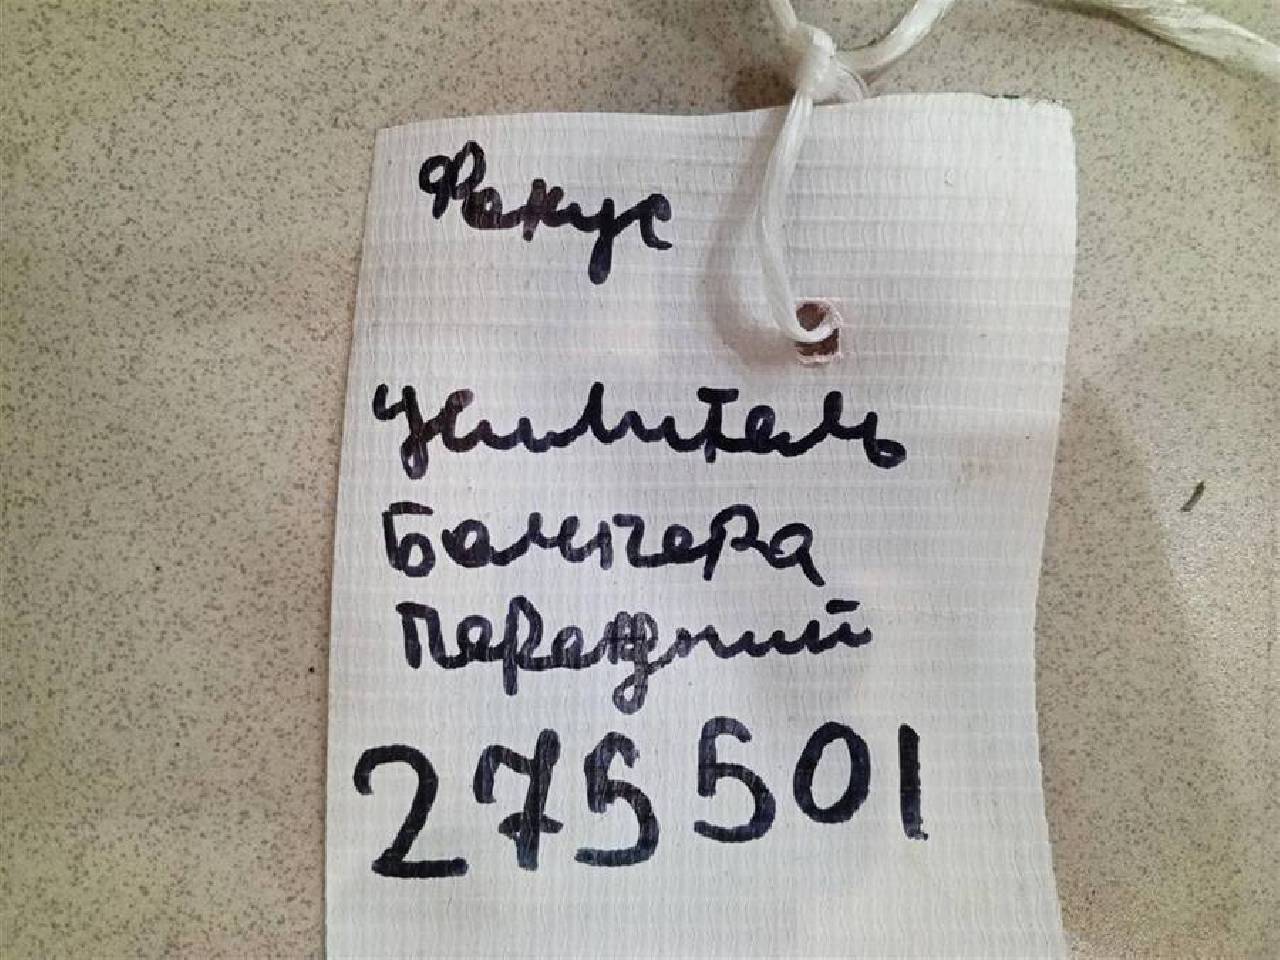 Фокус
Усилитель
Бампера
Передний
275501